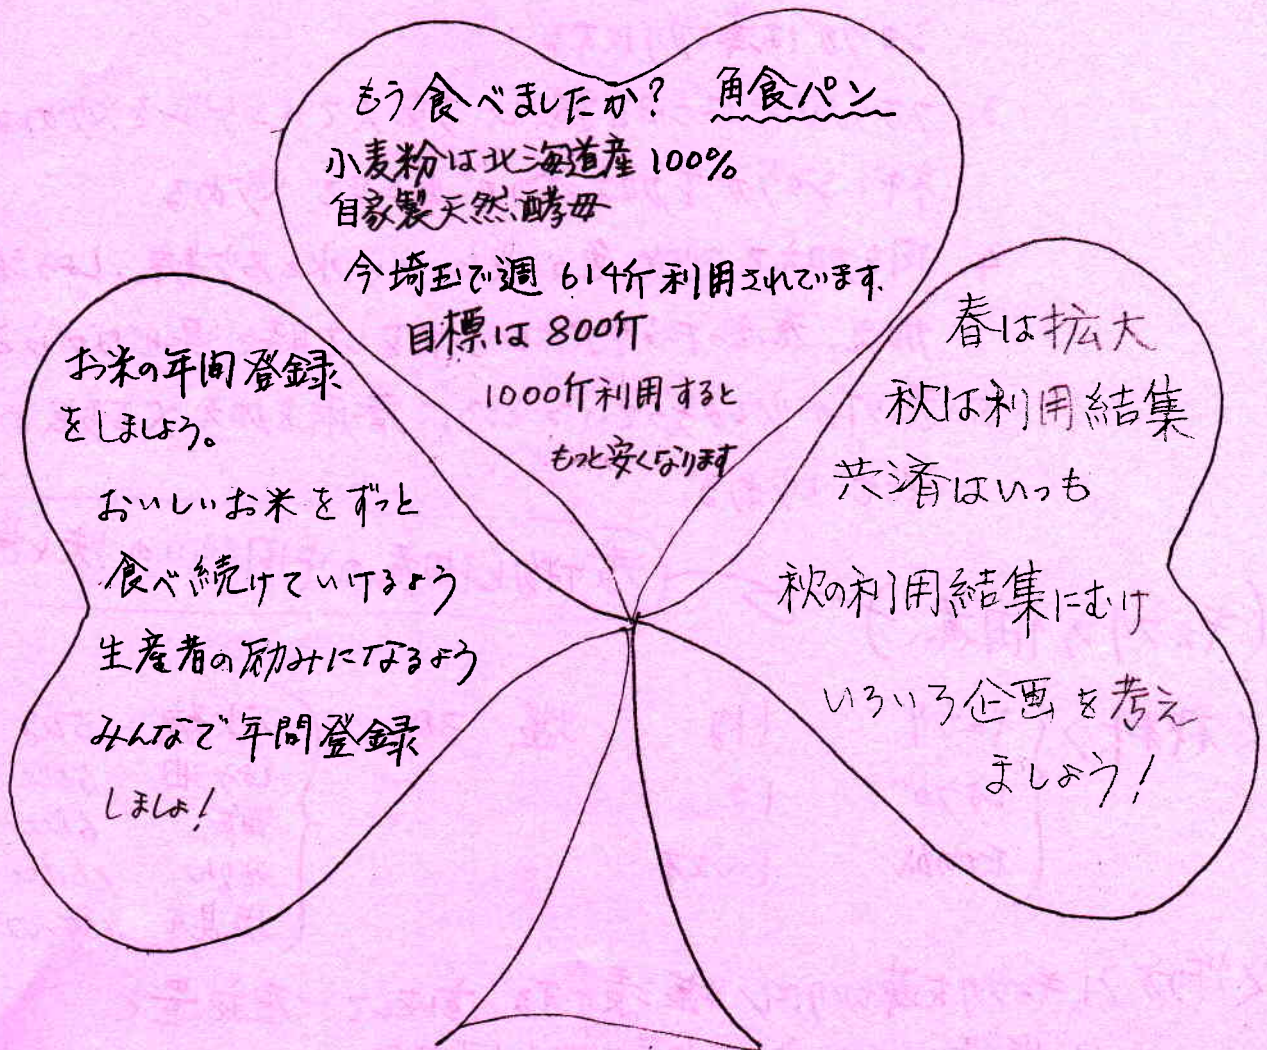 もう食べましたか？ 角食パン
小麦粉は北海道産100%
自家製天然酵母
今埼玉で週614斤利用されています.
目標は800斤
1000斤利用すると
もっと安くなります
お米の年間登録
をしましょう。
おいしいお米をずっと
食べ続けていけるよう
生産者の励みになるよう
みんなで年間登録
しましょ！
春は拡大
秋は利用結集
共済はいつも
秋の利用結集にむけ
いろいろ企画を考え
ましょう！